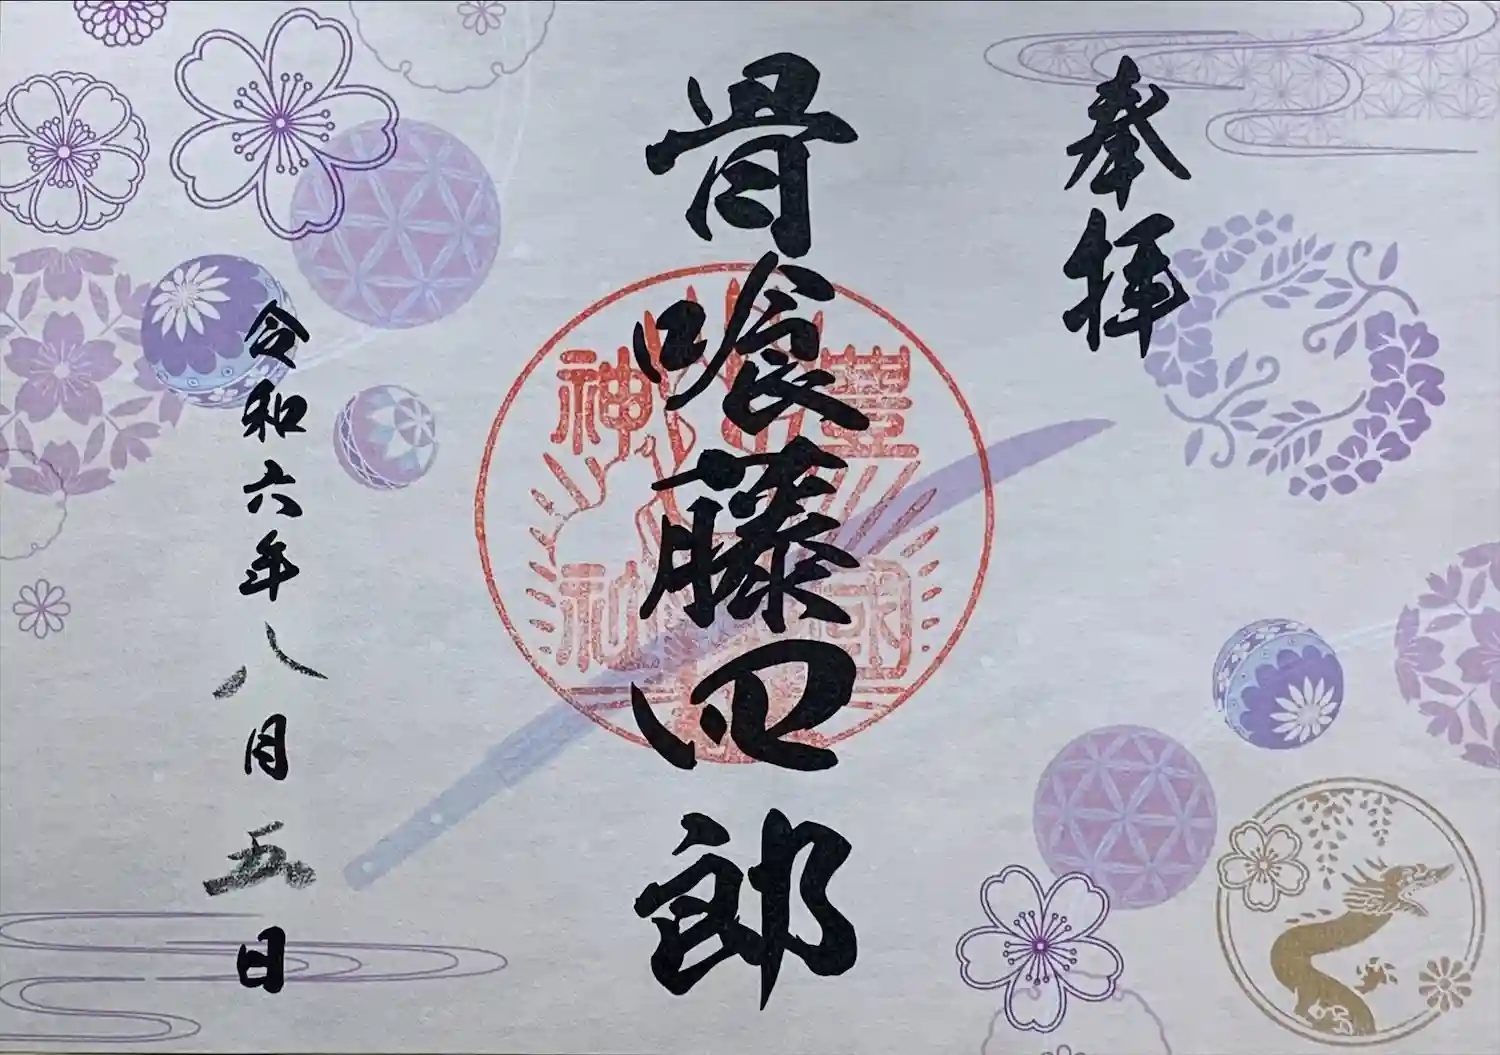 奉拝
骨喰藤四郎
令和六年八月五日
豊国
神社